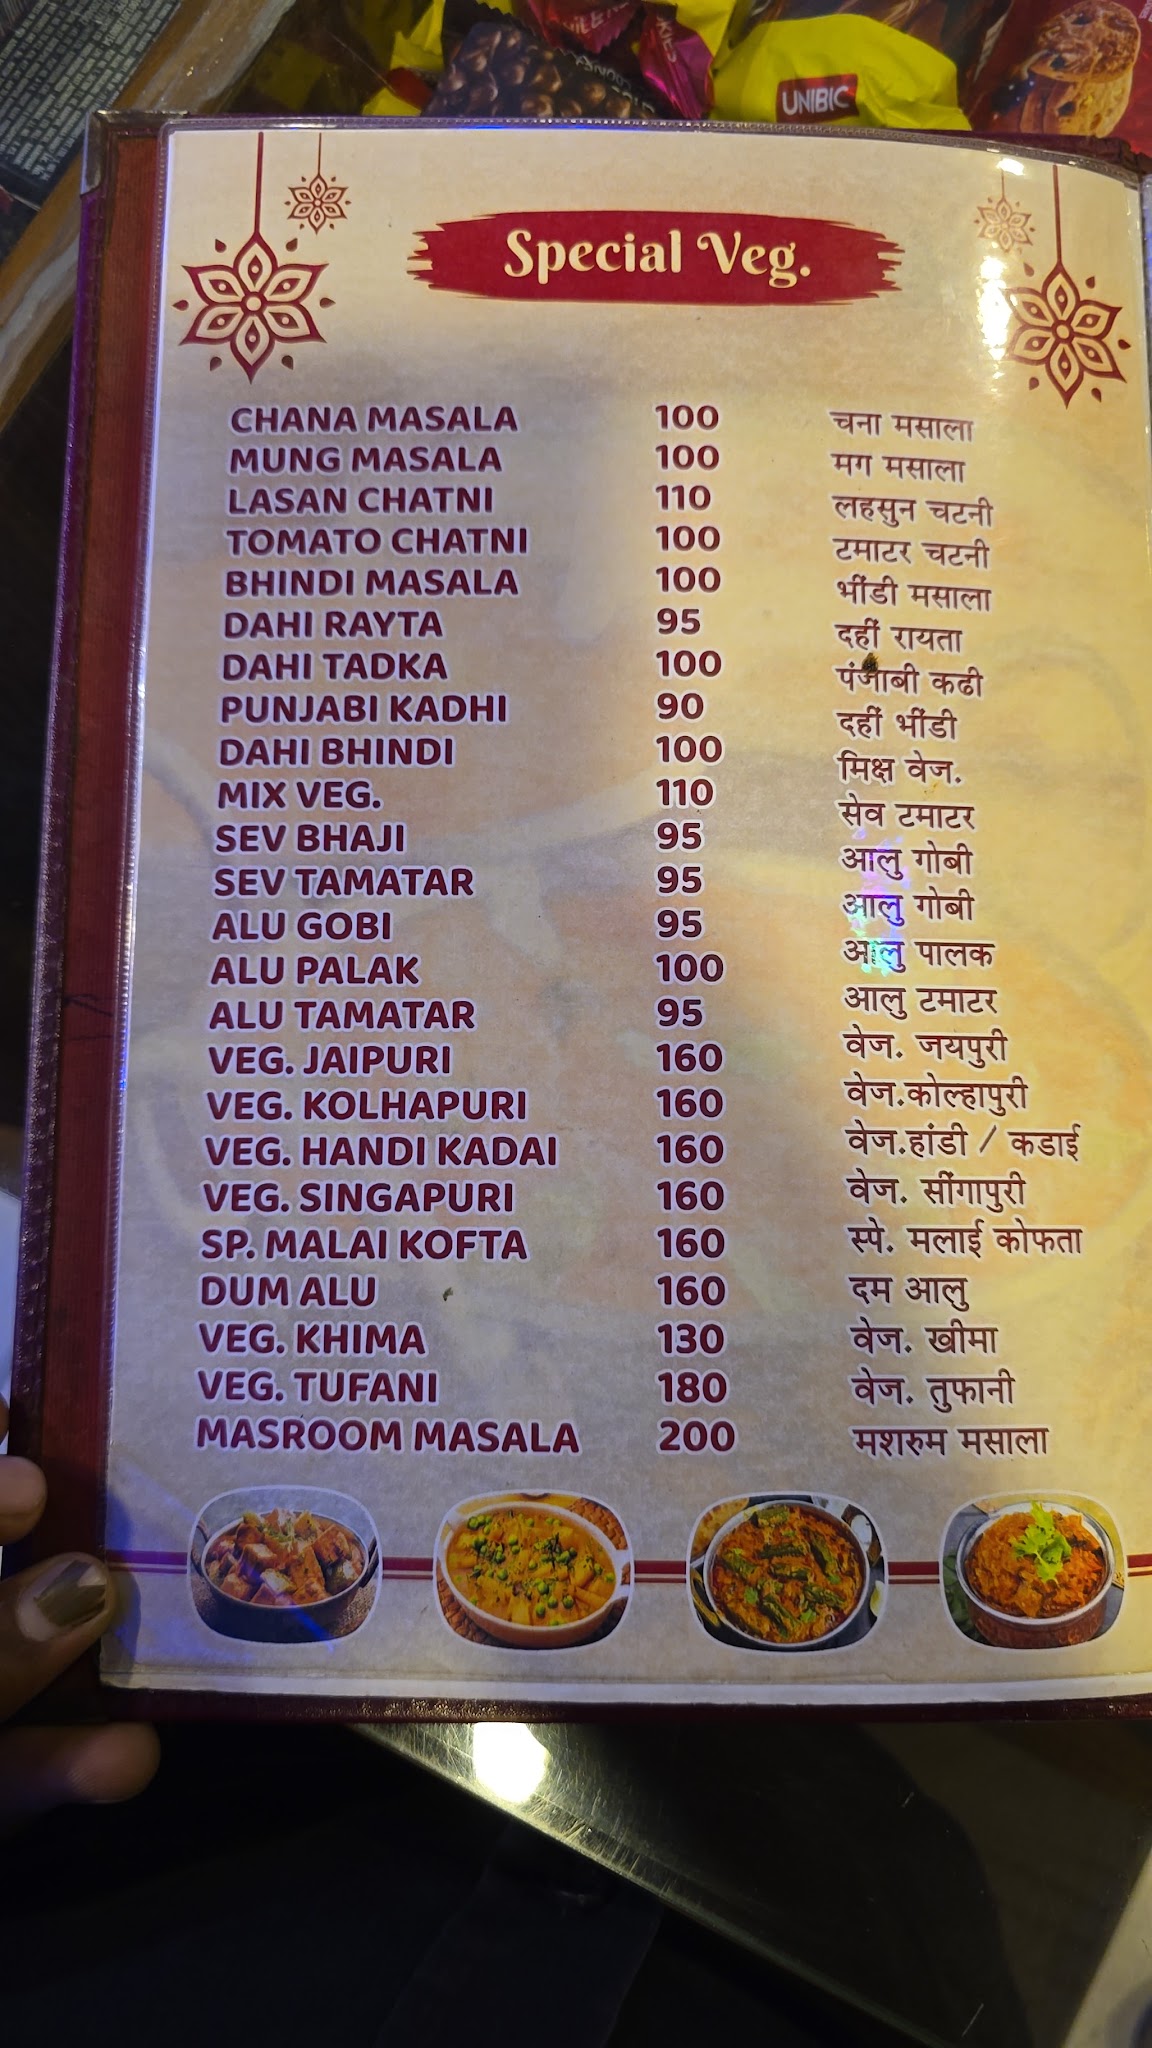 UNIBIC
Special Veg.
CHANA MASALA 100 चना मसाला
MUNG MASALA 100 मग मसाला
LASAN CHATNI 110 लहसुन चटनी
TOMATO CHATNI 100 टमाटर चटनी
BHINDI MASALA 100 भींडी मसाला
DAHI RAYTA 95 दहीं रायता
DAHI TADKA 100 पंजाबी कढी
PUNJABI KADHI 90 दहीं भींडी
DAHI BHINDI 100 मिक्ष वेज.
MIX VEG. 110 सेव टमाटर
SEV BHAJI 95 आलु गोबी
SEV TAMATAR 95 आलु गोबी
ALU GOBI 95 आलु पालक
ALU PALAK 100 आलु टमाटर
ALU TAMATAR 95 वेज. जयपुरी
VEG. JAIPURI 160 वेज.कोल्हापुरी
VEG. KOLHAPURI 160 वेज.हांडी / कडाई
VEG. HANDI KADAI 160 वेज. सींगापुरी
VEG. SINGAPURI 160 स्पे. मलाई कोफता
SP. MALAI KOFTA 160
DUM ALU 160 दम आलु
VEG. KHIMA 130 वेज. खीमा
VEG. TUFANI 180 वेज. तुफानी
MASROOM MASALA 200 मशरुम मसाला